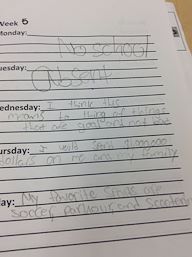 Week 5
Monday:
No school
Tuesday:
Absent
Wednesday: I think this
means to thing of things
that are good and not
Thursday: I would spend $1,000,000
dollars on me and my family
day: My favorite sports are
soccer, parkour, and scootering